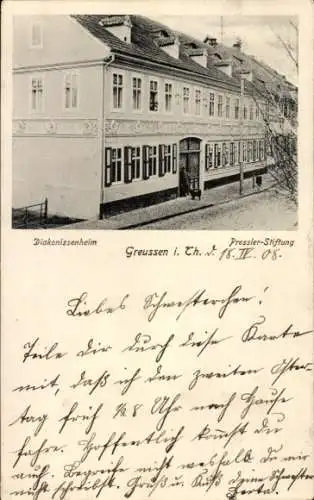 Diakonissenheim
Greussen i. Th. d. 18. IV. 08.
Pressler-Stiftung
Liebes Schwesterchen!
Teile Dir durch diese Karte
mit, daß ich den zweiten Oster-
tag früh ½8 Uhr nach Hause
fahre. Hoffentlich kommst du
auch. Begreife nicht weshalb Du mir
nicht schreibst. Gruß u. Kuß Deine Schwester